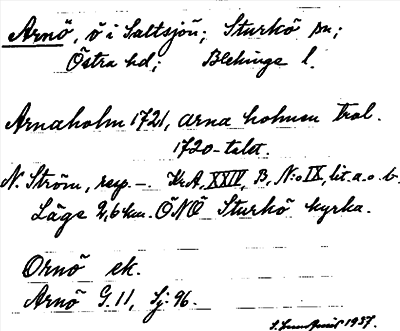 Arnö, ö i Saltsjön; Sturkö sn;
Östra hd; Blekinge l.
Arnaholm 1721, arna holmen trol.
1720-talet.
N. Ström, resp. –. Kr A, XXIV, B, N:o IX, lit. a. o. b.
Läge 2,6 km. ÖNÖ Sturkö kyrka.
Ornö ek.
Arnö G. 11, Sj. 96.
1937.